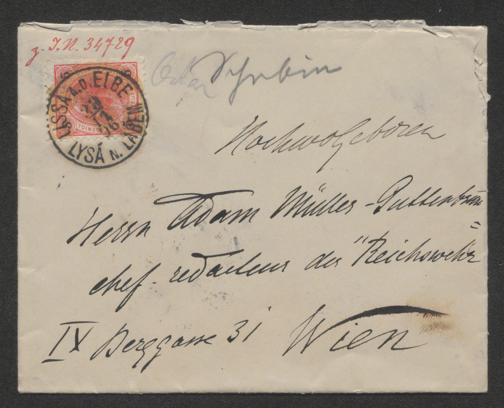 z. I.N. 34729
Ossip Schubin
LISSA A.D. ELBE
LYSÁ N. LABEM
Hochwolgeboren
Herrn Adam Müller-Guttenbrunn
chef-redacteur der "Reichswehr"
IX Berggasse 31 Wien